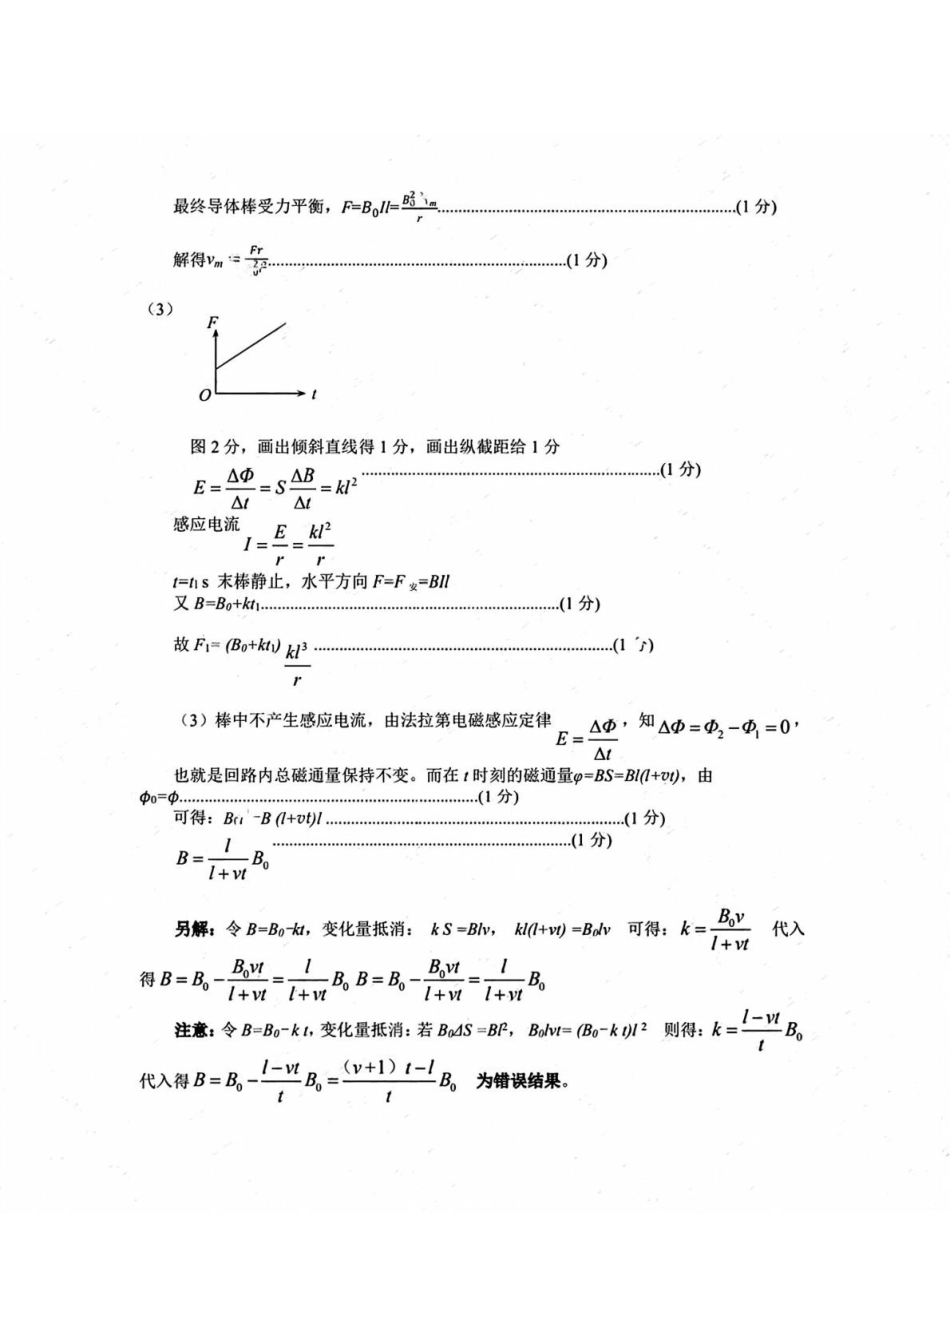 最终导体棒受力平衡，F=B₀Il=
..........(1 分)
解得vₘ = Fr
..........(1 分)
（3）
F
O
t
图 2 分，画出倾斜直线得 1 分，画出纵截距给 1 分
E = ΔΦ/Δt = S ΔB/Δt = kl² ..........(1 分)
感应电流 I = E/r = kl²/r
t=t₁ s 末棒静止，水平方向 F=F 安=BIl
又 B=B₀+kt₁..........(1 分)
故 F₁= (B₀+kt₁) kl³/r ..........(1
（3）棒中不产生感应电流，由法拉第电磁感应定律 E = ΔΦ/Δt ，知 ΔΦ = Φ₂ − Φ₁ = 0 ，
也就是回路内总磁通量保持不变。而在 t 时刻的磁通量φ=BS=Bl(l+vt)，由
ϕ₀=ϕ..........(1 分)
可得： B (l+vt)l ..........(1 分)
B = l/(l+vt) B₀ ..........(1 分)
另解：令 B=B₀-kt，变化量抵消： k S =Blv， kl(l+vt) =B₀lv 可得：k = B₀v/(l+vt) 代入
得 B = B₀ − B₀vt/(l+vt) = l/(l+vt) B₀ B = B₀ − B₀vt/(l+vt) = l/(l+vt) B₀
注意：令 B=B₀-k t，变化量抵消：若 B₀ΔS =Bl²， B₀lvt= (B₀-k t)l ² 则得：k = (l−vt)/t B₀
代入得 B = B₀ − (l−vt)/t B₀ = （v+1）t−l/t B₀ 为错误结果。